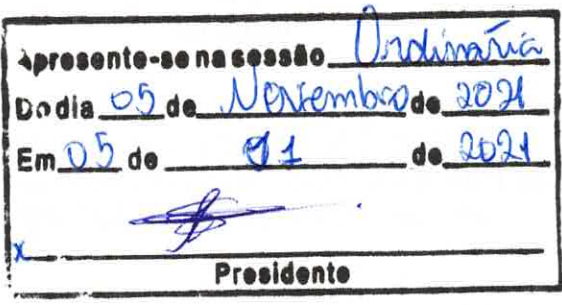 Apresente-se na sessão Ordinária
Do dia 05 de Novembro de 2021
Em 05 de 11 de 2021
x
Presidente